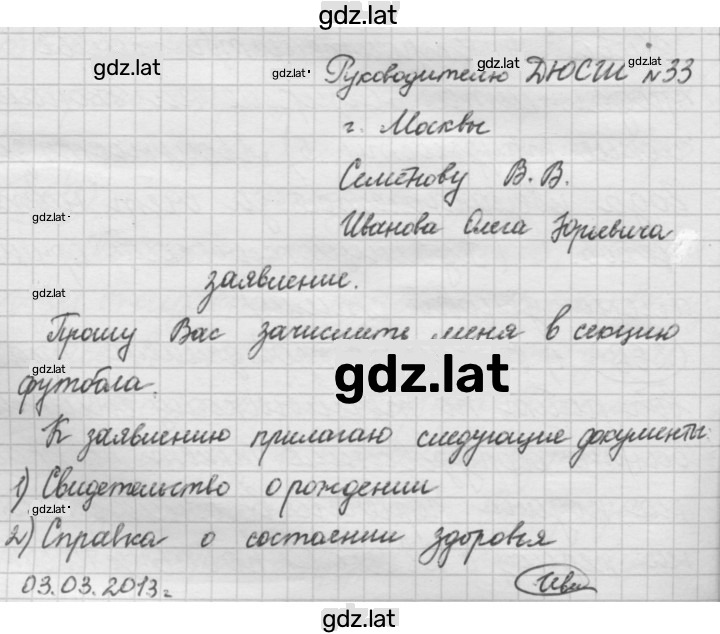 gdz.lat
gdz.lat
gdz.lat
gdz.lat
gdz.lat
Руководителю ДЮСШ №33
г. Москвы
Семёнову В. В.
gdz.lat
Иванова Олега Юрьевича
заявление.
gdz.lat
Прошу Вас зачислить меня в секцию
gdz.lat
gdz.lat
футбола.
К заявлению прилагаю следующие документы:
gdz.lat
1) Свидетельство о рождении
gdz.lat
2) Справка о состоянии здоровья
03.03.2013г.
Ива
gdz.lat